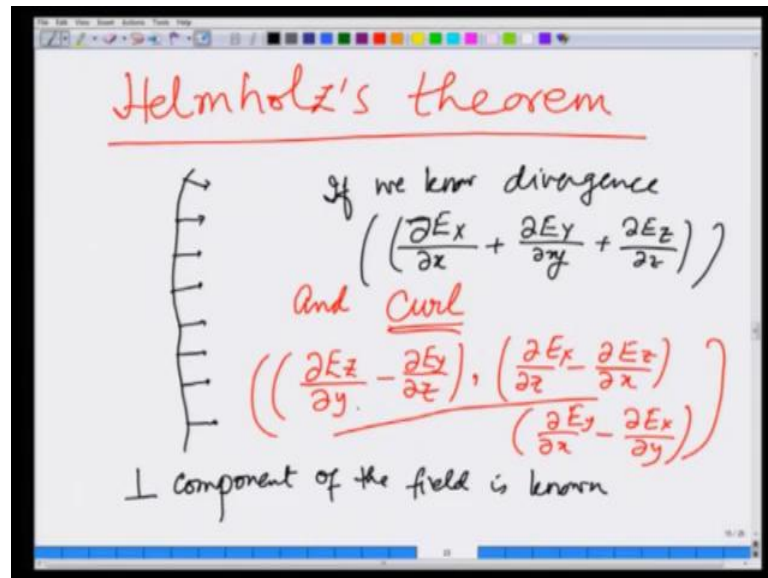 File Edit View Insert Actions Tools Help
Helmholz's theorem
If we know divergence
((∂Ex/∂x + ∂Ey/∂y + ∂Ez/∂z))
And Curl
((∂Ez/∂y - ∂Ey/∂z), (∂Ex/∂z - ∂Ez/∂x)
(∂Ey/∂x - ∂Ex/∂y))
⊥ component of the field is known